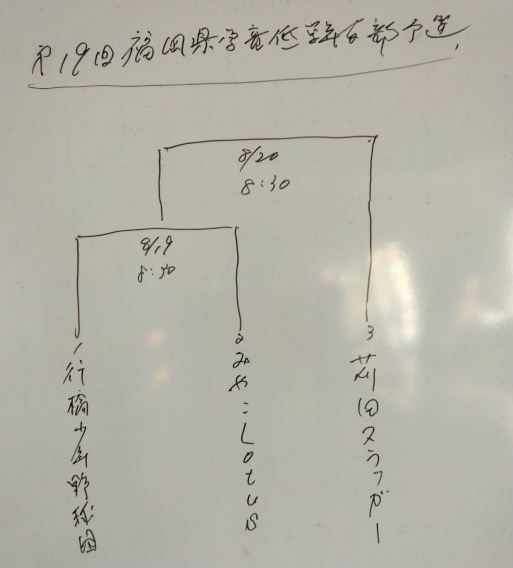 第19回福岡県学童低学年支部予選
8/20
8:30
8/19
8:30
1 行橋少年野球団
2 みやこLotus
3 苅田スラッガー